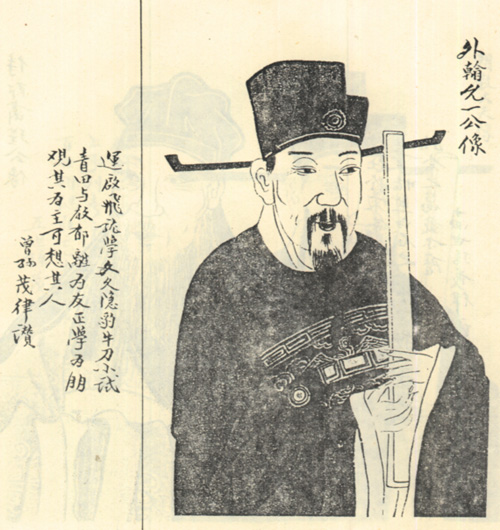 外翰允一公像
運啟飛龍學文久隱豹牛刀小試
青田与郁離为友正學为朋
觀其为主可想其人
曾孫茂律讚